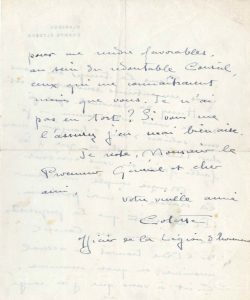 pour me rendre favorables,
au sein du redoutable Conseil,
ceux qui me connaîtraient
moins que vous. Je n'ai
pas eu tort ? Si vous me
l'assurez j'en serai bien aise.
Je reste, Monsieur le
Procureur Général et cher
ami,
votre vieille amie
Colette
Officier de la Légion d'honneur